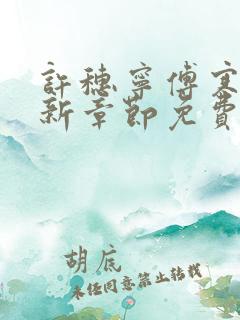 許穗寧傅寒
新章節免費
胡底
未经同意禁止转载